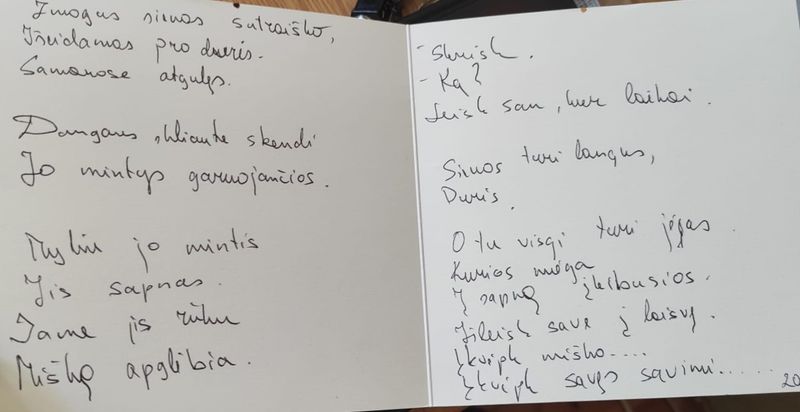 Žmogus sienas sutraiško,
Išeidamas pro duris.
Samanose atgulęs.
Dangaus skliaute skendi
Jo mintys garuojančios.
Myliu jo mintis
Jis sapnas.
Jame jis rūku
Mišką apglėbia.
- Skrisk.
- Ką?
Leisk sau, ker laikai.
Sienos turi langus,
Duris.
O tu visgi turi jėgas
Kurios miega
Į sapną įkibusios.
Išleisk save į laisvę.
Įkvėpk miško....
Įkvėpk savęs savimi.....
20